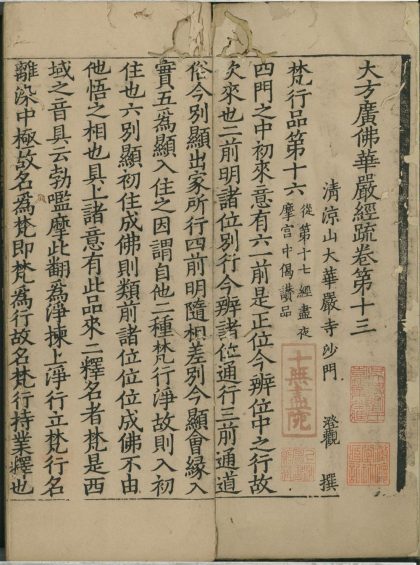 大方廣佛華嚴經疏卷第十三
清涼山大華嚴寺沙門 澄觀 撰
梵行品第十六
從第十七經盡夜
摩宮中偈讚品
四門之中初來意有六一前是正位今辨位中之行故
次來也二前明諸位別行今辨諸位通行三前通道
俗今別顯出家所行四前明隨相差別今顯會緣入
實五為顯入住之因謂自他二種梵行淨故則入初
住也六別顯初住成佛則類前諸位位位成佛不由
他悟之相也具上諸意有此品來二釋名者梵是西
域之音具云勃嚂摩此翻為淨揀上淨行立梵行名
離染中極故名為梵即梵為行故名梵行持業釋也
十無盡院